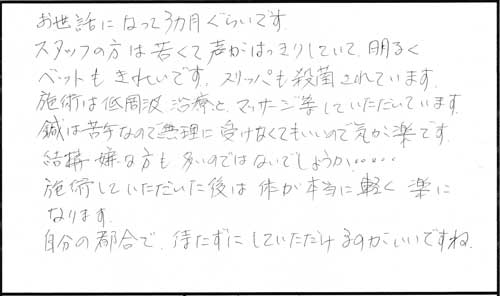 お世話になって3カ月ぐらいです
スタッフの方は若くて声がはっきりしていて、明るく
ベットもきれいです。スリッパも殺菌されています。
施術は低周波治療と、マッサージ等していただいています。
鍼は苦手なので無理に受けなくてもいいので気が楽です。
結構嫌な方も多いのではないでしょうか……
施術していただいた後は体が本当に軽く楽に
なります。
自分の都合で、待たずにしていただけるのがいいですね。